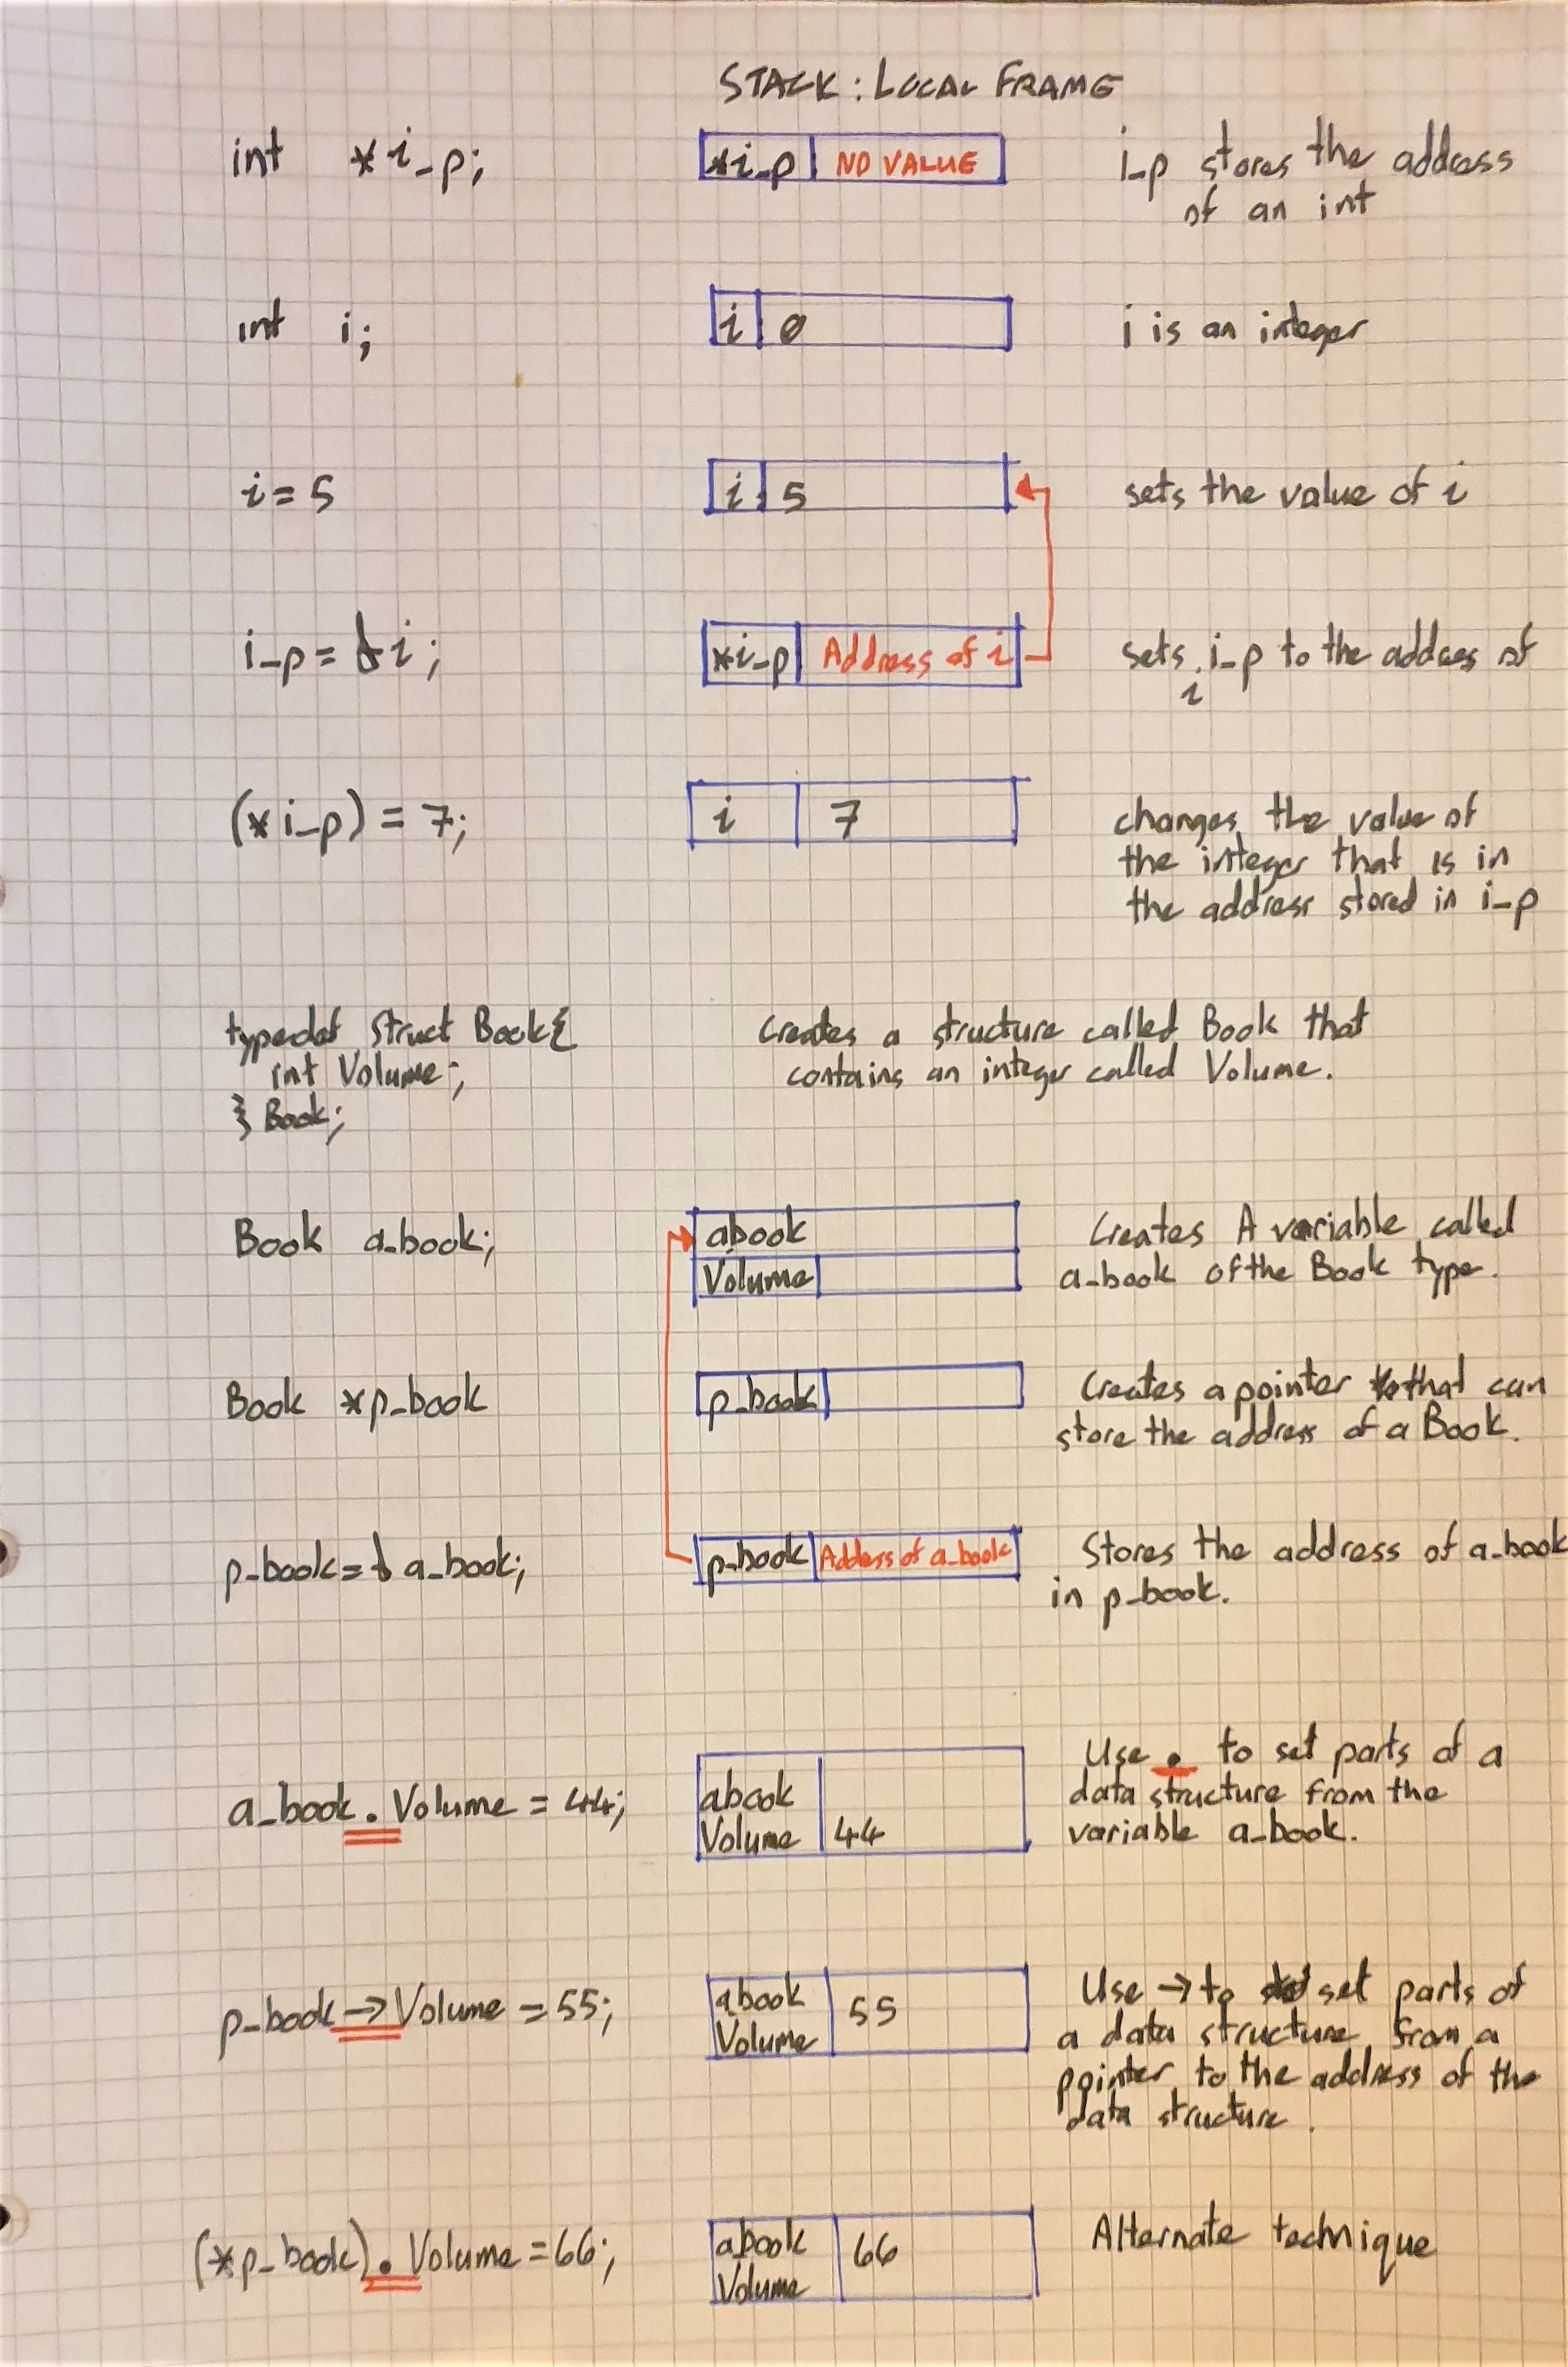 STACK: LOCAL FRAME
int *i_p;
*i_p NO VALUE
i_p stores the address
of an int
int i;
i 0
i is an integer
i = 5
i 5
sets the value of i
i_p = &i;
*i_p Address of i
sets i_p to the addres of
i
(*i_p) = 7;
i 7
changes the value of
the integer that is in
the address stored in i_p
typedef struct Book{
int Volume;
} Book;
Creates a structure called Book that
contains an integer called Volume.
Book a_book;
abook
Volume
Creates A variable called
a_book of the Book type.
Book *p_book
p_book
Creates a pointer that can
store the address of a Book.
p_book = & a_book;
p_book Address of a_book
Stores the address of a_book
in p_book.
a_book.Volume = 44;
abook
Volume 44
Use . to set parts of a
data structure from the
variable a_book.
p_book->Volume = 55;
abook 55
Volume
Use -> to set parts of
a data structure from a
pointer to the address of the
data structure.
(*p_book).Volume = 66;
abook 66
Volume
Alternate technique